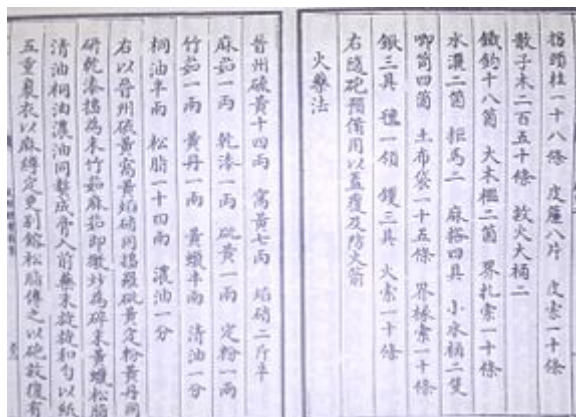 拐頭柱一十八條 皮簾八片 皮索一十條
散子木二百五十條 救火大桶二
鐵鈎十八箇 大木檻二箇 界扎索一十條
水濃二箇 拒馬二 麻搭四具 小水桶二隻
唧筒四箇 土布袋一十五條 界椽索一十條
鍬三具 氊一領 钁三具 火索一十條
右隨砲預備用以蓋覆及防火箭
火藥法
晉州硫黃十四兩 窩黃七兩 焰硝二斤半
麻茹一兩 乾漆一兩 砒黃一兩 定粉一兩
竹茹一兩 黃丹一兩 黃蠟半兩 清油一分
桐油半兩 松脂一十四兩 濃油一分
右以晉州硫黃窩黃焰硝同擣羅砒黃定粉黃丹同
研乾漆擣為末竹茹麻茹即微炒為碎末黃蠟松脂
清油桐油濃油同熬成膏入前藥末旋旋和勻以紙
五重裹衣以麻縛定更別鎔松脂傅之以砲放復有